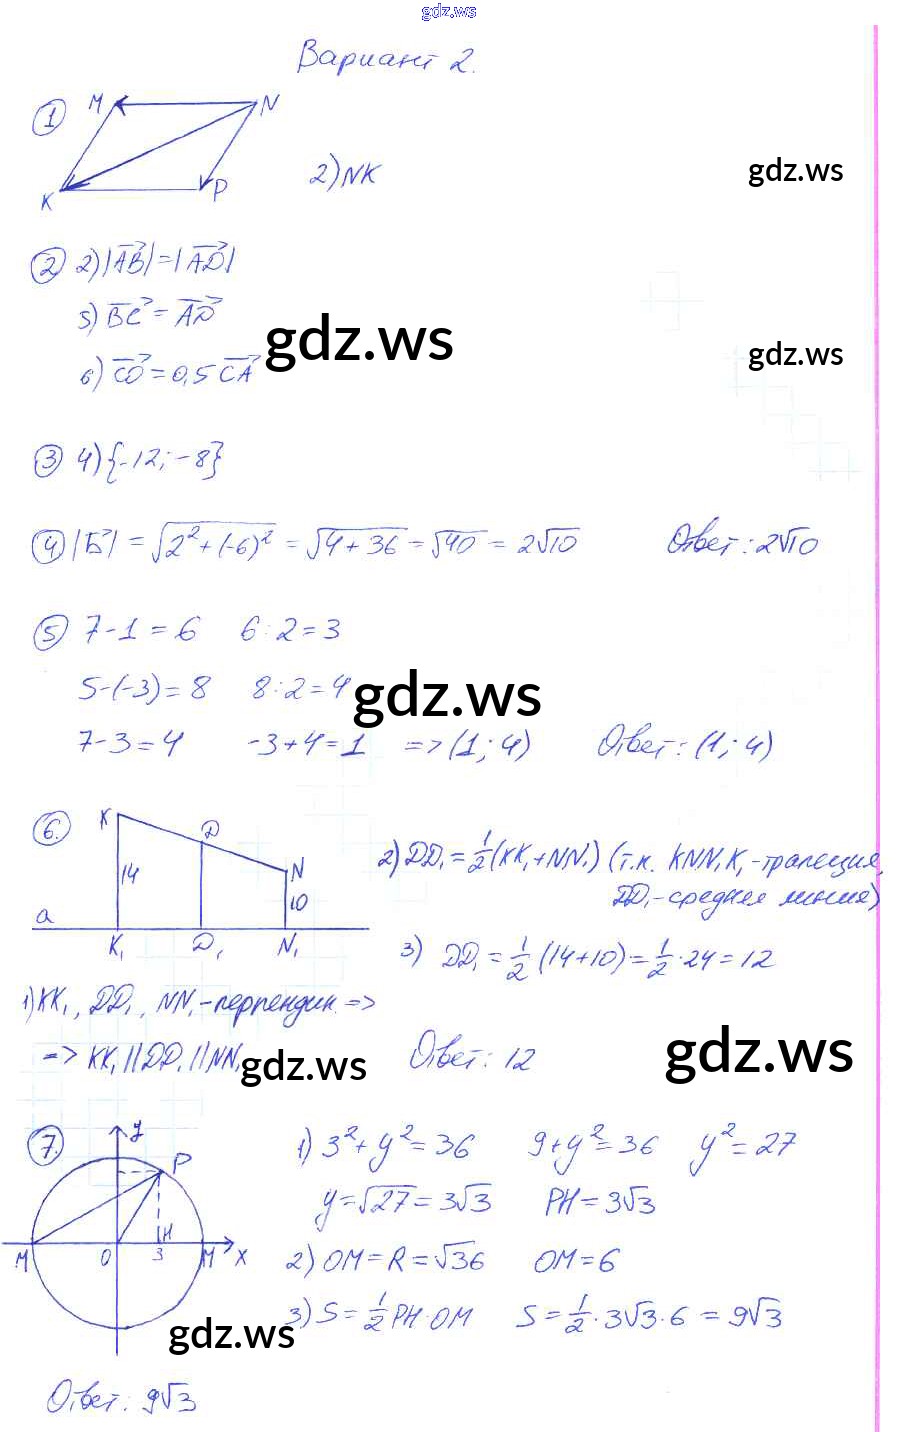 gdz.ws
Вариант 2.
1
M N
K P
2) NK
gdz.ws
2 2) |AB| = |AD|
5) BC = AD
6) CO = 0,5 CA
gdz.ws
gdz.ws
3 4) {-12; -8}
4 |Б| = √2² + (-6)² = √4 + 36 = √40 = 2√10 Ответ: 2√10
5 7 - 1 = 6 6 : 2 = 3
5 - (-3) = 8 8 : 2 = 4
gdz.ws
7 - 3 = 4 -3 + 4 = 1 => (1; 4) Ответ: (1; 4)
6.
K D N
14 10
a
K₁ D₁ N₁
2) DD₁ = 1/2 (KK₁ + NN₁) (т.к. KNN₁K₁ - трапеция,
DD₁ - средняя линия)
3) DD₁ = 1/2 (14+10) = 1/2 · 24 = 12
1) KK₁, DD₁, NN₁ - перпендик. =>
=> KK₁ || DD₁ || NN₁
gdz.ws
Ответ: 12
gdz.ws
7.
y P
M O 3 H M x
1) 3² + y² = 36 9 + y² = 36 y² = 27
y = √27 = 3√3 PH = 3√3
2) OM = R = √36 OM = 6
3) S = 1/2 PH · OM S = 1/2 · 3√3 · 6 = 9√3
gdz.ws
Ответ: 9√3